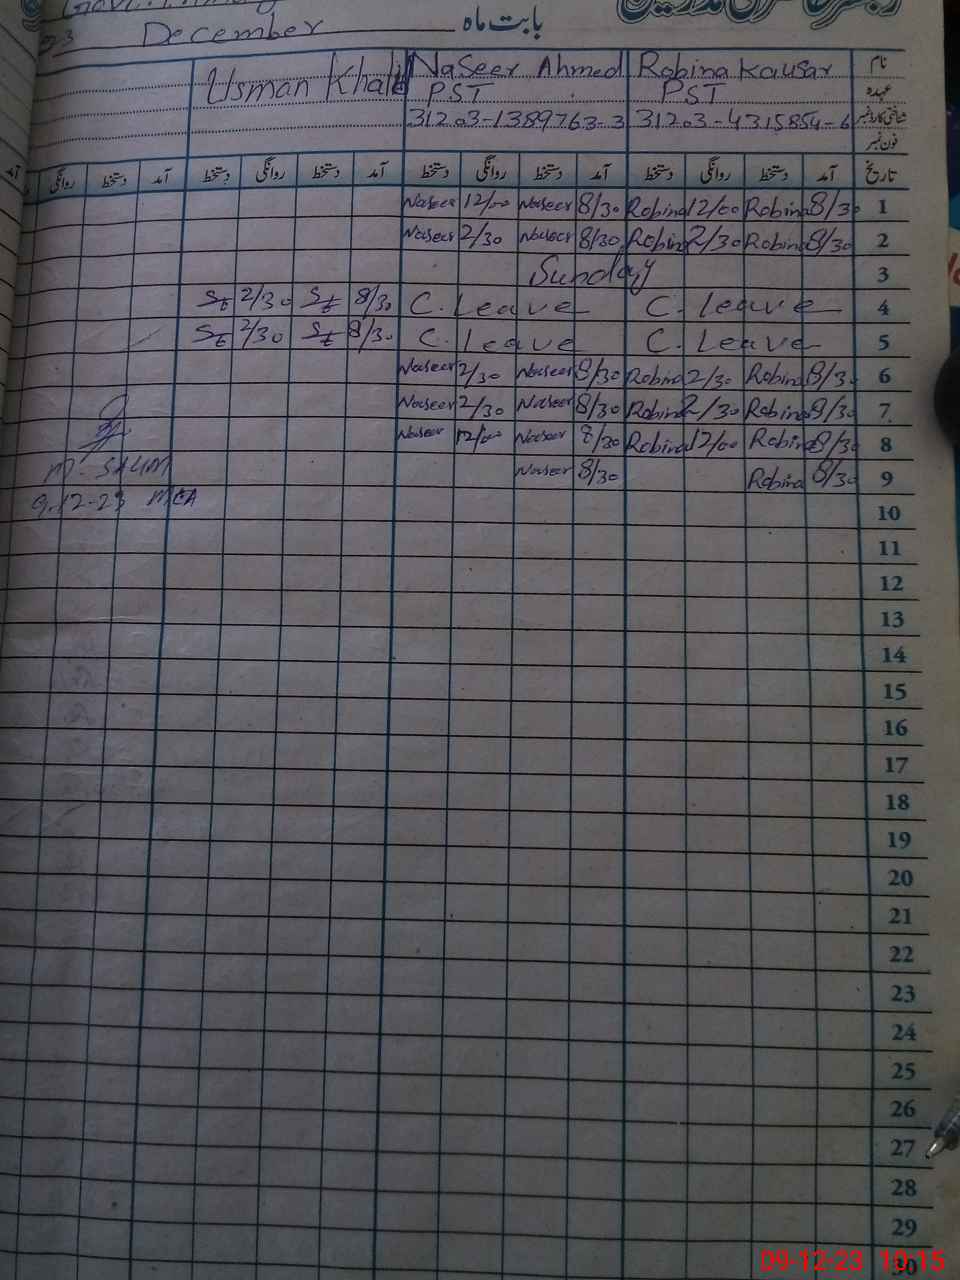 رجسٹر حاضری مدرسین
December بابت ماہ
نام Robina Kausar Naseer Ahmed Usman Khalid
عہدہ PST PST
شناختی کارڈ نمبر 31203-4315854-6 31203-1389763-3
فون نمبر
تاریخ آمد دستخط روانگی دستخط آمد دستخط روانگی دستخط آمد دستخط روانگی دستخط آمد دستخط روانگی
1 8/30 Robina 12/00 Robina 8/30 Naseer 12/00 Naseer
2 8/30 Robina 2/30 Robina 8/30 Naseer 2/30 Naseer
3 Sunday
4 C. Leave C. Leave 8/30 2/30
5 C. Leave C. Leave 8/30 2/30
6 8/30 Robina 2/30 Robina 8/30 Naseer 2/30 Naseer
7 8/30 Robina 2/30 Robina 8/30 Naseer 2/30 Naseer
8 8/30 Robina 12/00 Robina 8/30 Naseer 12/00 Naseer
9 8/30 Robina 8/30 Naseer
M. SALIM
9-12-23 MEA
10
11
12
13
14
15
16
17
18
19
20
21
22
23
24
25
26
27
28
29
30
09-12-23 10:15